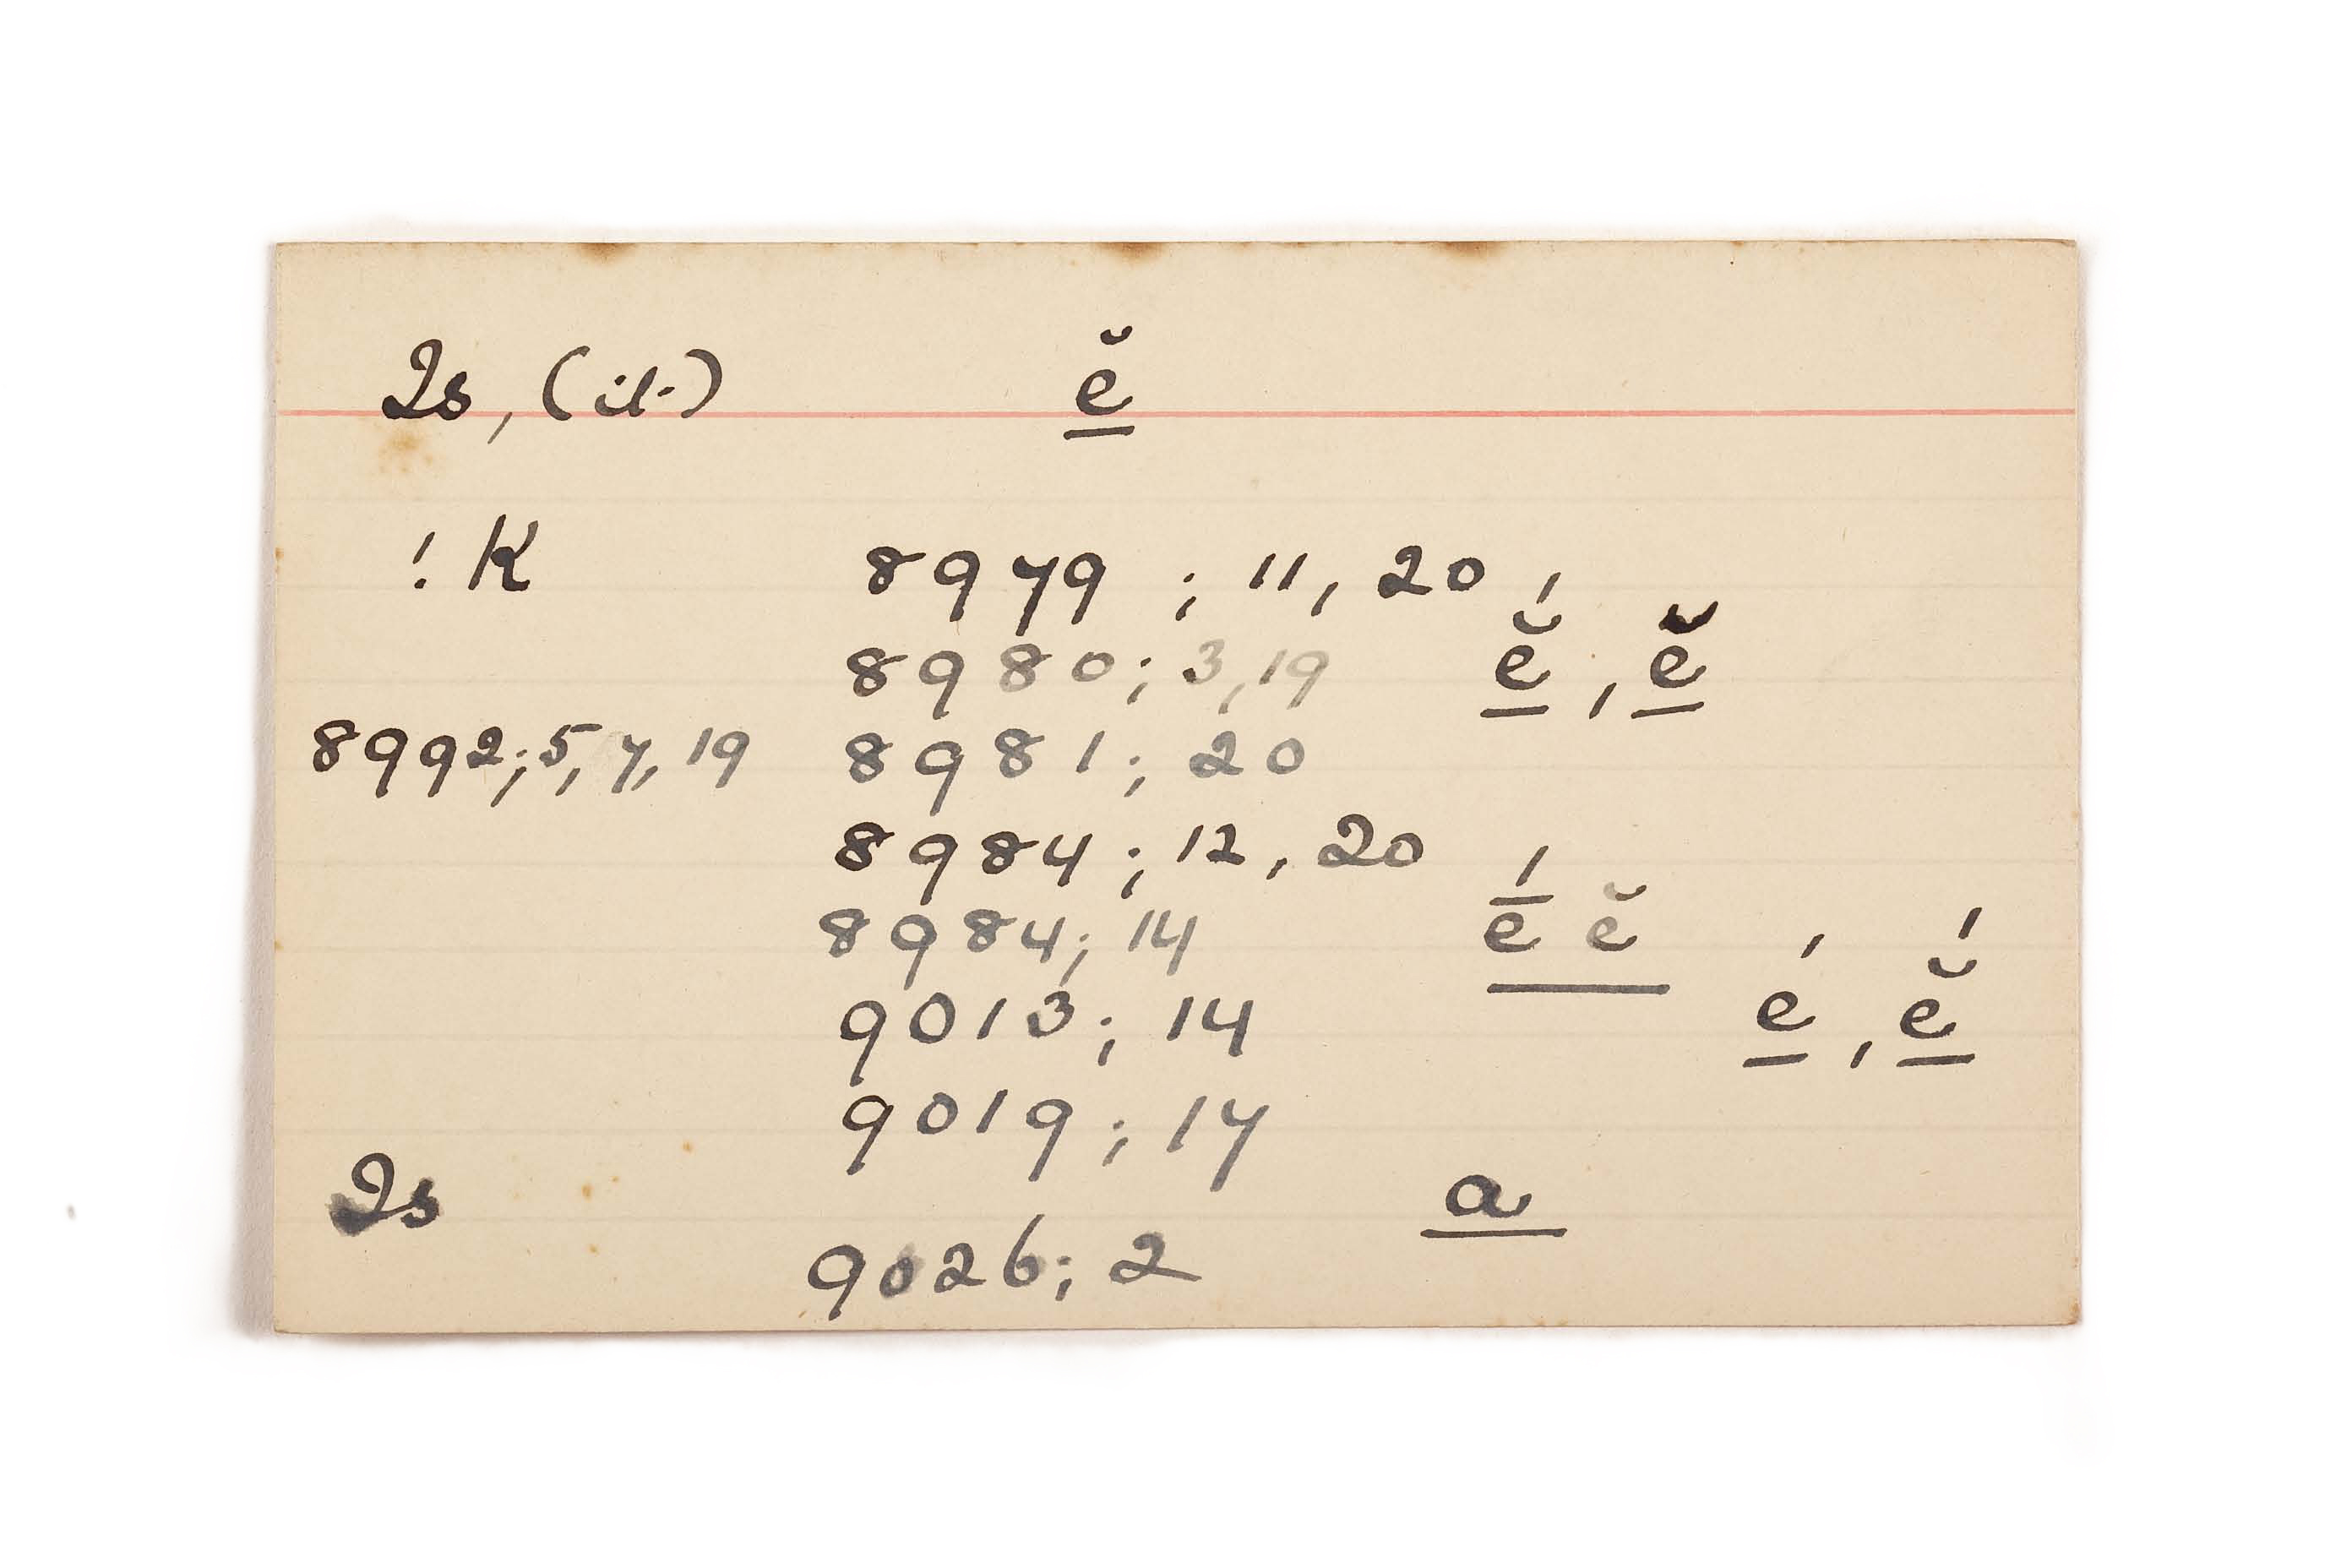 Is, (it.) ĕ̱
! K 8979 ; 11, 20
8980; 3, 19 ĕ̱́ , ĕ̱
8992; 5, 7, 19 8981; 20
8984; 12, 20
8984; 14 ḗ ĕ
9013; 14 é̱ , ĕ̱́
9019; 17
Is a̱
9026; 2